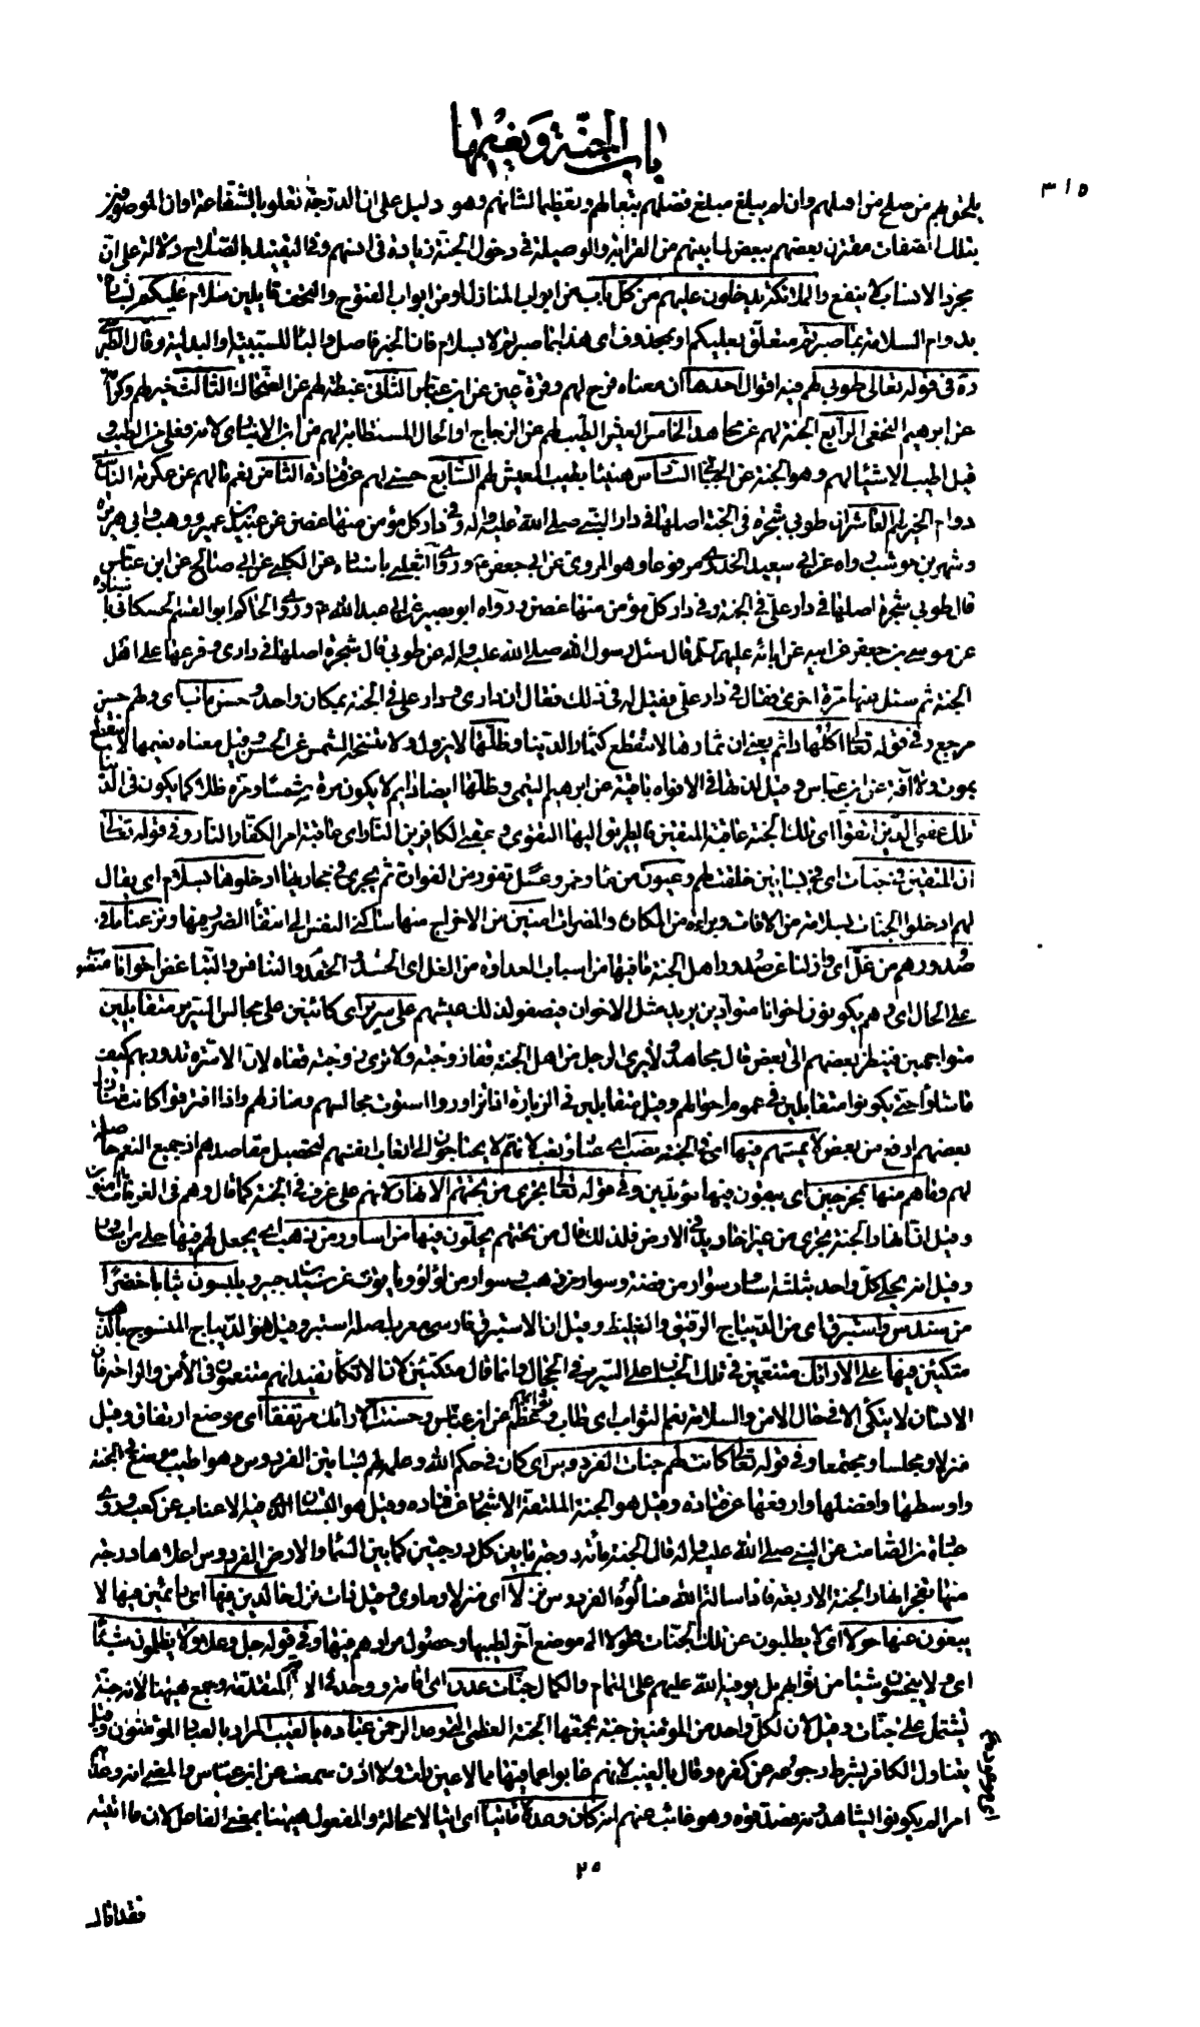 باب الجنة ونعيمها
٣١٥
يلحق بهم من صلح من اهلهم وان لم يبلغ مبلغ فضلهم تبعا لهم وتعظيما لشانهم وهو دليل على ان الدرجة تعلو بالشفاعة او ان الموصوفين
بتلك الصفات مقترن بعضهم ببعض لما بينهم من القرابة والوصيلة في دخول الجنة زيادة في انسهم وفي التقييد بالصلاح دلالة على ان
مجرد الانساب لا ينفع والملائكة يدخلون عليهم من كل باب من ابواب المنازل او من ابواب الفتوح والتحف قايلين سلام عليكم بشارة
بدوام السلامة بما صبرتم متعلق بعليكم او بمحذوف اى هذا بما صبرتم لا بسلام فان الخبر فاصل والباء للسببية او البدلية وقال الطبرسي
ره في قوله تعالى طوبى لهم فيه اقوال احدها ان معناه فرح لهم وقرة عين عن ابن عباس الثاني غبطة لهم عن الضحاك الثالث خير لهم وكرامة
عن ابرهيم النخعي الرابع الجنة لهم عن مجاهد الخامس العيش الطيب لهم عن الزجاج او الحال المستطابة لهم عن ابن الانباري لانه فعلى من الطيب و
قيل اطيب الاشياء لهم وهو الجنة عن الجبائي السادس هنيئا بطيب العيش لهم السابع حسنى لهم عن قتادة الثامن نعم ما لهم عن عكرمة التاسع
دوام الخير لهم العاشر ان طوبى شجرة في الجنة اصلها في دار النبي صلى الله عليه واله وفي دار كل مؤمن منها غصن عن عبيد بن عمير ووهب وابى هريرة
وشهر بن حوشب رواه عن ابي سعيد الخدري مرفوعا وهو المروي عن ابي جعفر ع وروى الثعلبي باسناده عن الكلبي عن ابي صالح عن ابن عباس
قال طوبى شجرة اصلها في دار علي في الجنة وفي دار كل مؤمن منها غصن ورواه ابو بصير عن ابي عبد الله ع وروى الحاكم ابو القسم الحسكاني باسناده
عن موسى بن جعفر عن ابيه عن ابائه عليهم السلم قال سئل رسول الله صلى الله عليه واله عن طوبى قال شجرة اصلها في داري وفرعها على اهل
الجنة ثم سئل عنها مرة اخرى فقال في دار علي فقيل له في ذلك فقال ان داري ودار علي في الجنة بمكان واحد وحسن مآب اى ولهم حسن
مرجع وفي قوله تعالى اكلها دائم يعني ان ثمارها لا تنقطع كثمار الدنيا وظلها لا يزول ولا تنسخه الشمس عن الحسن وقيل معناه نعيمها لا ينقطع
بموت ولا آفة عن ابن عباس وقيل لذتها في الافواه باقية عن ابرهيم التيمي وظلها ايضا دايم لا يكون مرة شمسا ومرة ظلا كما يكون في الدنيا
تلك عقبى الذين اتقوا اى تلك الجنة عاقبة المتقين فالطريق اليها التقوى وعقبى الكافرين النار اى عاقبة امر الكفار النار وفي قوله تعالى
ان المتقين في جنات اى في بساتين خلقت لهم وعيون من ماء وخمر وعسل تفور من الفوارة ثم يجري في مجاريها ادخلوها بسلام اى يقال
لهم ادخلوا الجنات بسلامة من الافات وبراءة من المكاره والمضرات امنين من الاخراج منها ساكني النفس الى انتفاء الضرر فيها ونزعنا ما في
صدورهم من غل اى وازلنا عن صدور اهل الجنة ما فيها من اسباب العداوة من الغل اى الحسد والحقد والتنافس والتباغض اخوانا منصوب
على الحال اى وهم يكونون اخوانا متوادين يريد مثل الاخوان فيصفو لذلك عيشهم على سرر اى كائنين على مجالس السرور متقابلين
متواجهين فينظر بعضهم الى بعض قال مجاهد لا يرى الرجل من اهل الجنة قفا زوجته ولا ترى زوجته قفاه لان الاسرة تدور بهم كيف
ما شاؤا حتى يكونوا متقابلين في عموم احوالهم وقيل متقابلين في الزيارة اذا تزاوروا استوت مجالسهم ومنازلهم واذا افترقوا كانت منازل
بعضهم ارفع من بعض لا يمسهم فيها اى في الجنة نصب اى عناء وتعب لانهم لا يحتاجون الى اتعاب انفسهم لتحصيل مقاصدهم اذ جميع النعم حاصلة
لهم وما هم منها بمخرجين اى يبقون فيها مؤبدين وفي قوله تعالى تجري من تحتهم الانهار لانهم على غرف في الجنة كما قال وهم في الغرفات امنون
وقيل ان انهار الجنة تجري من غير اخاديد في الارض فلذلك قال من تحتهم يحلون فيها من اساور من ذهب اى يجعل لهم فيها حلي من اساور
وقيل انه يحلى كل واحد بثلثة اساور سوار من فضة وسوار من ذهب وسوار من لؤلؤ وياقوت عن سعيد بن جبير ويلبسون ثيابا خضرا
من سندس واستبرق اى من الديباج الرقيق والغليظ وقيل ان الاستبرق فارسي معرب اصله استبر وقيل هو الديباج المنسوج بالذهب
متكئين فيها على الارائك متنعمين في تلك الجنان على السرر في الحجال وانما قال متكئين لان الاتكاء يفيد انهم متنعمون في الأمن والراحة فان
الانسان لا يتكئ الا في حال الامن والسلامة نعم الثواب اى طاب ثوابهم وعظم عن ابن عباس وحسنت الارائك مرتفقا اى موضع ارتفاق وقيل
منزلا ومجلسا ومجتمعا وفي قوله تعالى كانت لهم جنات الفردوس اى كان في حكم الله وعلمه لهم بساتين الفردوس وهو اطيب موضع في الجنة
واوسطها وافضلها وارفعها عن قتادة وقيل هو الجنة الملتفة الاشجار عن قتاده وقيل هو البستان الذي فيه الاعناب عن كعب وروى
عبادة بن الصامت عن النبي صلى الله عليه واله قال الجنة مائة درجة ما بين كل درجتين كما بين السماء والارض الفردوس اعلاها درجة
منها تفجر انهار الجنة الاربعة فاذا سالتم الله فسألوه الفردوس نزلا اى منزلا وماوى وقيل ذات نزل خالدين فيها اى دائمين فيها لا
يبغون عنها حولا اى لا يطلبون عن تلك الجنات تحولا الى موضع آخر لطيبها وحصول مرادهم فيها وفي قوله جل وعلا ولا يظلمون شيئا
اى ولا يبخسون شيئا من ثوابهم بل يوفيه الله عليهم على التمام والكمال جنات عدن اى اقامة ووحد في الاية المتقدمة وجمع ههنا لانه جنة
تشتمل على جنات وقيل لان لكل واحد من المؤمنين جنة تجمعها الجنة العظمى التي وعد الرحمن عباده بالغيب المراد بالعباد المؤمنون وقيل
يتناول الكافر بشرط رجوعه عن كفره وقال بالغيب لانهم غابوا عما فيها مما لا عين رات ولا اذن سمعت عن ابن عباس والمعنى انه وعدهم
امرا لم يكونوا يشاهدونه فصدقوه وهو غائب عنهم انه كان وعده ماتيا اى اتيا لا محالة والمفعول ههنا بمعنى الفاعل لان ما اتيته
٢٥
فقد اتاك